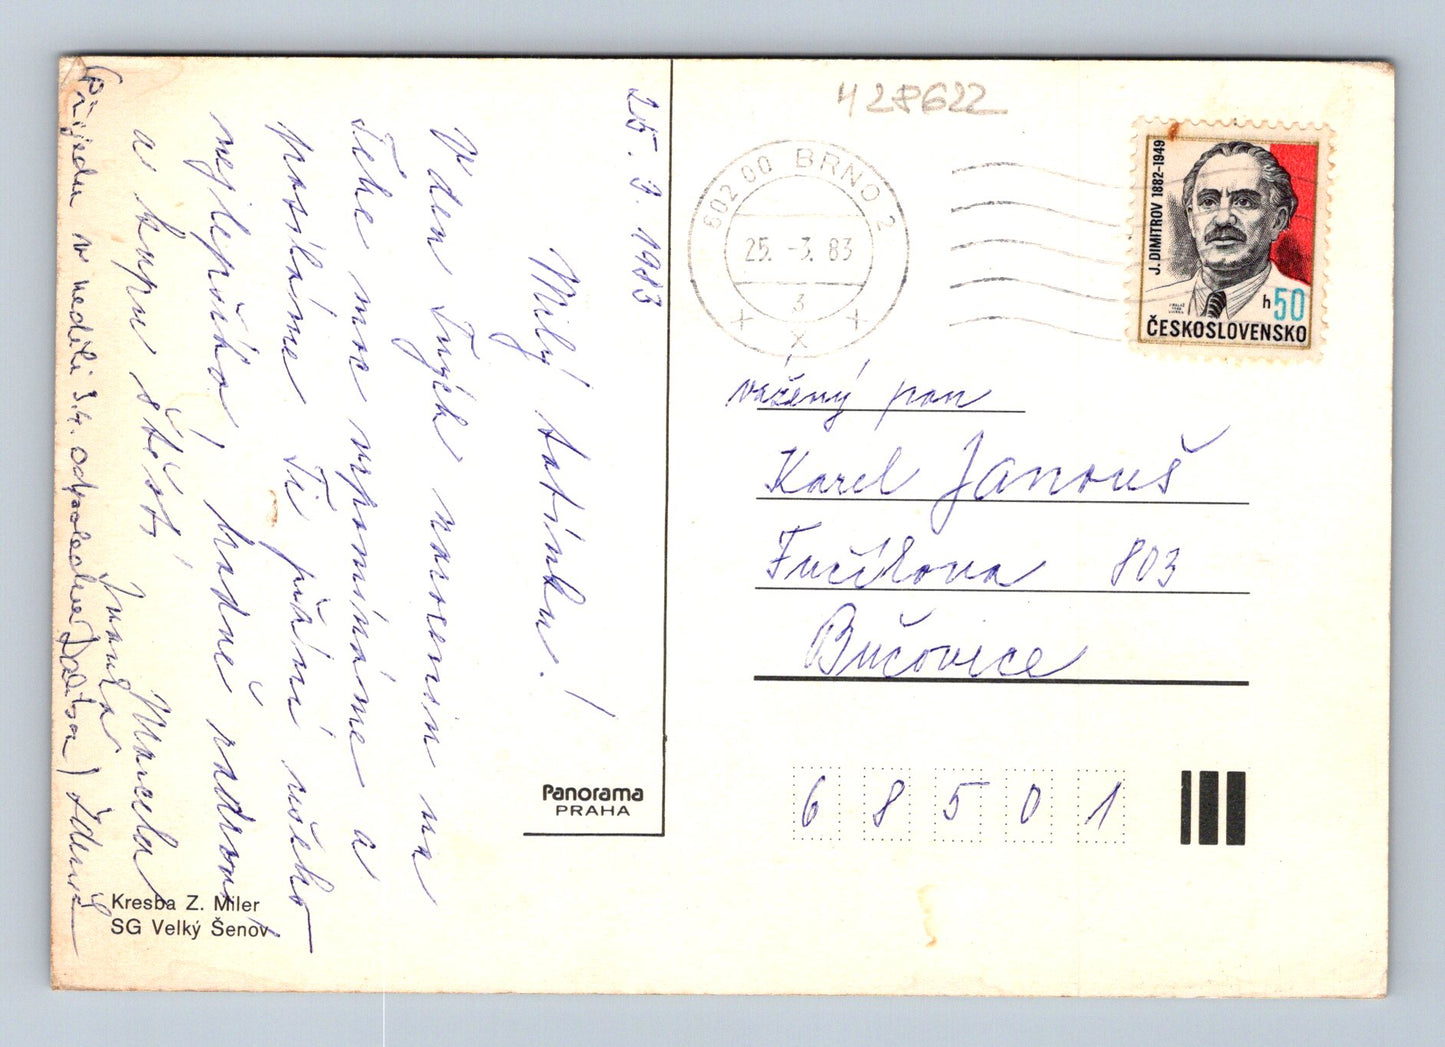 25. 3. 1983
Milý tatínku!
V den Tvých narozenin na
Tebe moc vzpomínáme a
posíláme Ti přání všeho
nejlepšího, hodně zdraví
a kupu štěstí
Marcela
Zdeněk
(Přijedu v neděli 3.4. odpoledne
Kresba Z. Miler
SG Velký Šenov
Panorama
PRAHA
428622
602 00 BRNO 2
25. -3. 83
3
J. DIMITROV 1882-1949
h 50
ČESKOSLOVENSKO
vážený pan
Karel Janouš
Fučíkova 803
Bučovice
68501